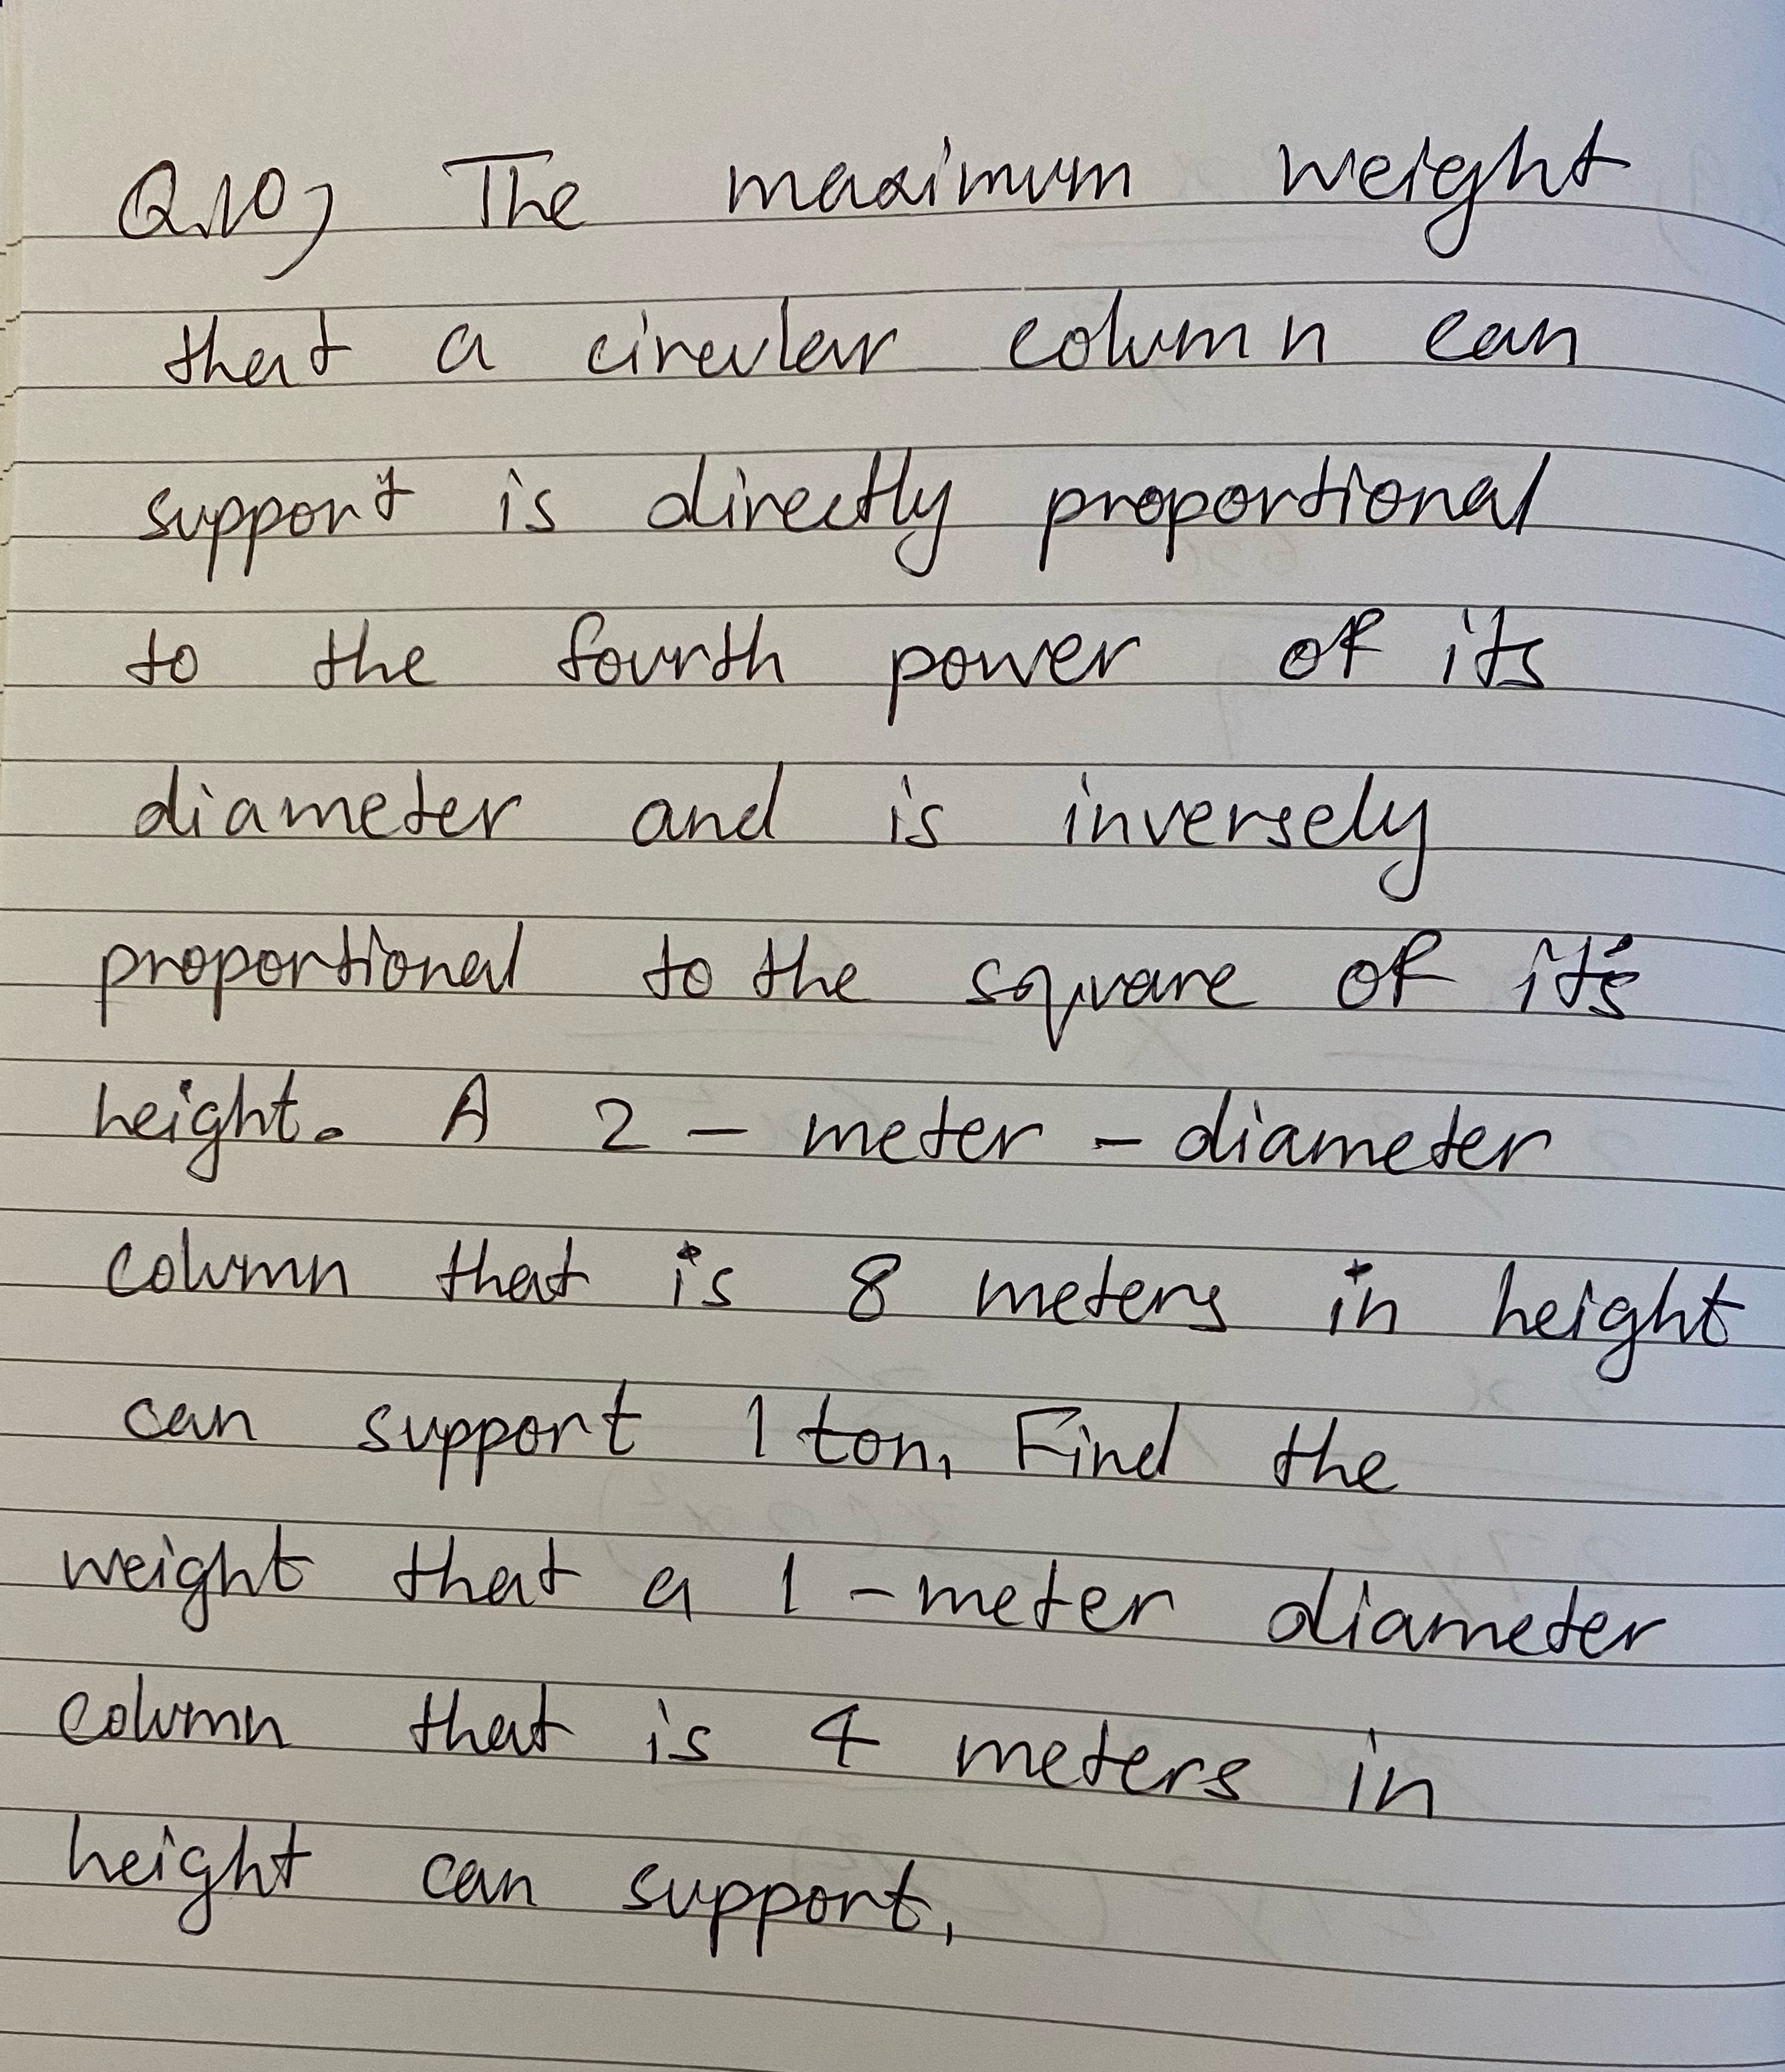 Q.10) The maximum weight
that a circular column can
support is directly proportional
to the fourth power of its
diameter and is inversely
proportional to the square of its
height. A 2 - meter - diameter
column that is 8 meters in height
can support 1 ton. Find the
weight that a 1 - meter diameter
column that is 4 meters in
height can support.